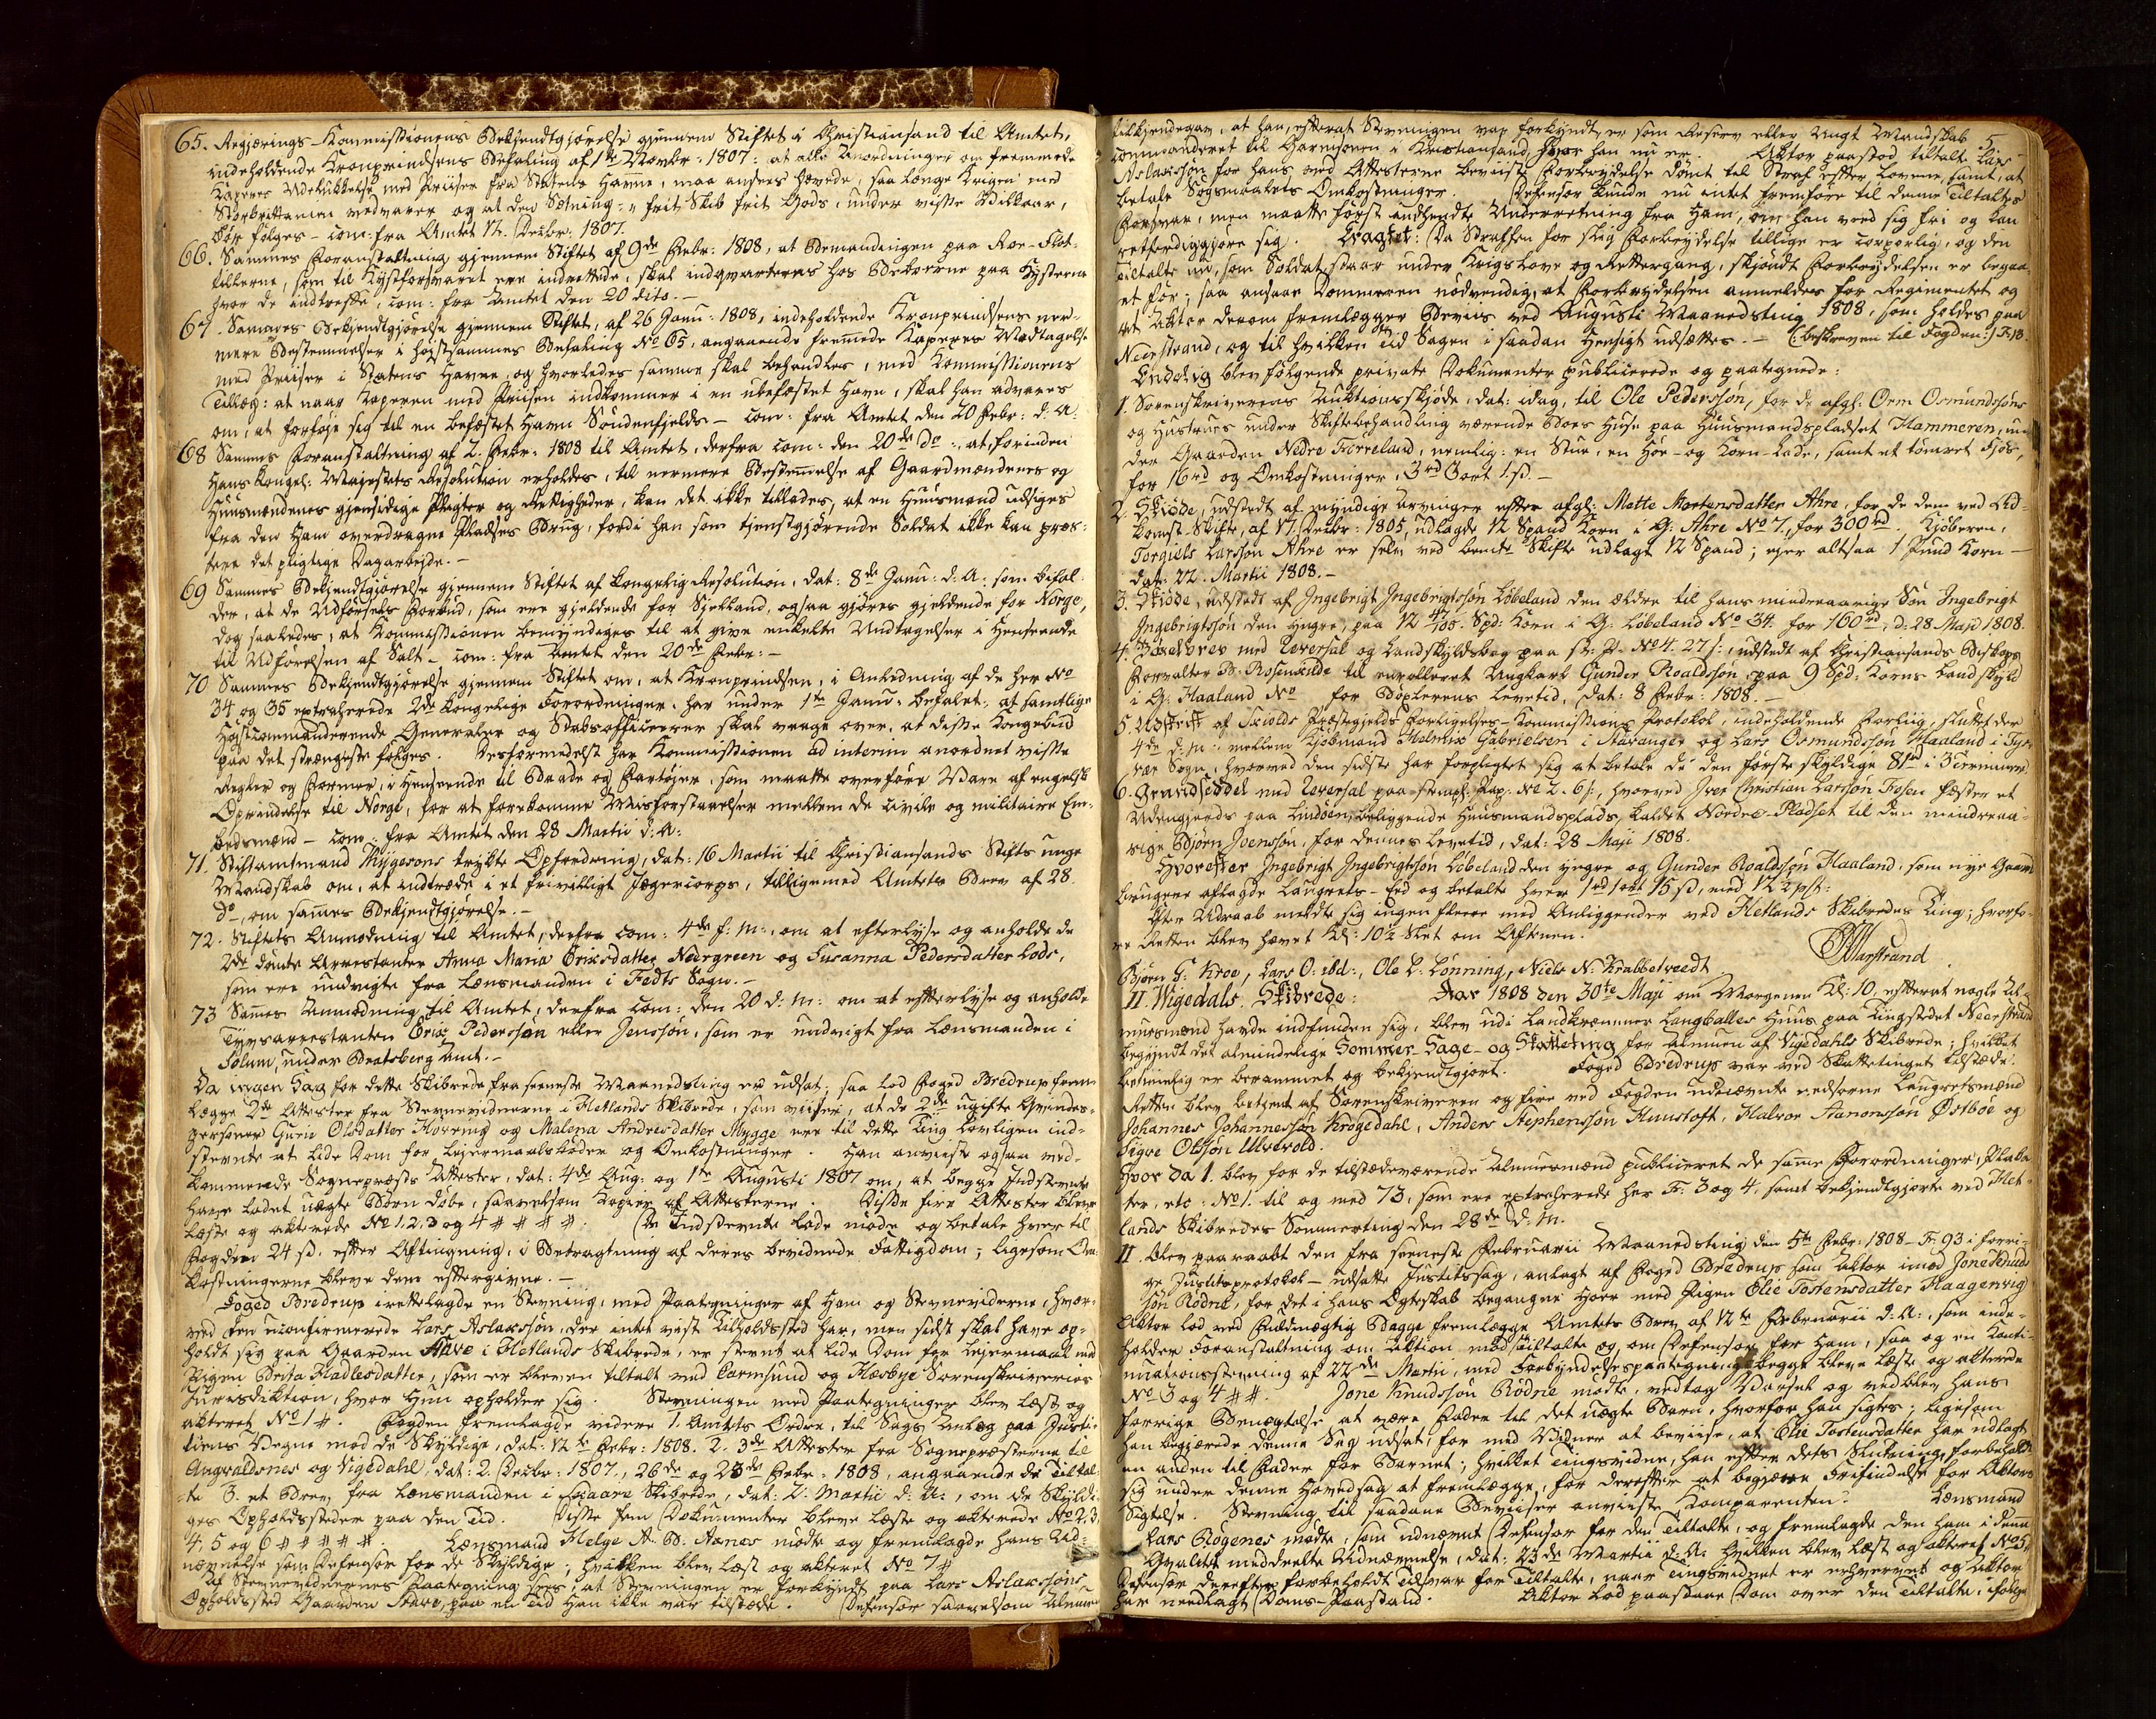 65. Regjærings-Kommissionens Bekjendtgjørelse gjennem Stiftet i Christiansand til Amtet,
indeholdende Kronprindsens Befaling af 1ste Novbr: 1807: at alle Anordninger om fremmede
Kapere Udelukkelse med Priiser fra Statens Havne, maa ansees hævede, saa længe Krigen med
Storbrittanien vedvarer og at den Sætning: "frit Skib frit Gods, under visse Vilkaar,
bør følges - com: fra Amtet 12. Decbr: 1807.
66. Sammes Foranstaltning gjennem Stiftet af 9de Febr: 1808, at Bemandingen paa Roe-Flot-
tillerne, som til Kystforsvaret ere indrettede, skal indqvarteres hos Beboerne paa Kysterne
hvor de indtreffe, com: fra Amtet den 20 dito. -
67. Sammes Bekjendtgjørelse gjennem Stiftet, af 26 Janu: 1808, indeholdende Kronprindsens nær-
mere Bestemmelser i højstsammes Befaling No 65, angaaende fremmede Kaperes Modtagelse
med Priiser i Statens Havne, og hvorledes samme skal behandles, med Kommissionens
Tillæg: at naar Kaperen med Priisen indkommer i en ubefæstet Havn, skal han advares
om, at forføje sig til en befæstet Havn Søndenfjelds - com: fra Amtet den 20 Febr: d. A.
68 Sammes Foranstaltning af 2. Febr: 1808 til Amtet, derfra com: den 20de do:, at, forinden
Hans Kongel: Majestæts Resolution erholdes, til nermere Bestemmelse af Gaardmændenes og
Huusmændenes gjensidige Pligter og Rettigheder, kan det ikke tillades, at en Huusmand udsiges
fra den Ham overdragne Pladses Brug, fordi han som tjenstgjørende Soldat ikke kan præs-
tere det pligtige Dagarbejde. -
69 Sammes Bekjendtgjørelse gjennem Stiftet af kongelig Resolution, dat: 8de Janu: d. A: som bifal-
der, at de Udførsels Forbud, som ere gjeldende for Sjelland, ogsaa gjøres gjeldende for Norge,
dog saaledes, at Kommissionen bemyndiges til at give enkelte Undtagelser i Henseende
til Udførselen af Salt - com: fra Amtet den 20de Febr: -
70 Sammes Bekjendtgjørelse gjennem Stiftet om, at Kronprindsen, i Anledning af de her No
34 og 35 extraherede 2de kongelige Forordninger, har under 1ste Janu: befalet, at samtlige
Højstcommanderende Generaler og Stabsofficerer skal vaage over, at disse Kongebud
paa det strængeste følges. Desformedelst har Kommissionen ad interim anordnet visse
Regler og Former, i Henseende til Baade og Fartøjer, som maatte overføre Vare af engelsk
Oprindelse til Norge, for at forekomme Misforstaaelser mellem de civile og militaire Em-
bedsmænd - com: fra Amtet den 28 Martii d: A:
71. Stiftamtmand Thygesons trykte Opfordring, dat: 16 Martii til Christiansands Stifts unge
Mandskab om, at indtræde i et frivilligt Jægercorps, tilligemed Amtets Brev af 28
do, om sammes Bekjendtgjørelse. -
72. Stiftets Anmodning til Amtet, derfra com: 4de f: M:, om at efterlyse og anholde de
2de dømte Arrestanter Anna Maria Eriksdatter Nedrgreen og Susanna Pedersdatter Lods,
som ere undvigte fra Lænsmanden i Fedts Sogn. -
73 Sammes Anmodning til Amtet, derfra com: den 20 d: M: om at efterlyse og anholde
Tyvsarrestanten Erix Pedersøn eller Jensøn, som er undvigt fra Lænsmanden i
Solum, under Bratsberg Amt. -
Da ingen Sag for dette Skibrede fra seeneste Maanedsting er udsat; saa lod Foged Bredrup frem-
lægge 2de Attester fra Stevnevidnerne i Hetlands Skibrede, som viiser, at de 2de ugifte Qvindes-
personer Gurie Olsdatter Hovring og Malena Andresdatter Mygge ere til dette Ting lovligen ind-
stevnte at lide Dom for Lejermaalsbøder og Omkostninger. Han anviiste ogsaa ved-
kommende Sognepræsts Attester, dat: 4de Aug: og 1ste Augusti 1807 om, at begge Indstevnte
have ladet uægte Børn døbe, saavelsom Kopier af Attesterne. Disse fire Attester bleve
læste og akterede No 1, 2, 3 og 4 # # # #. De Indstevnte lode møde og betale hver til
Fogden 24 ß. efter Aftingning, i Betragtning af deres bevidnede Fattigdom; ligesom Om-
kostningerne bleve dem eftergivne. -
Foged Bredrup irettelagde en Stevning, med Paategninger af Ham og Stevnevidnerne, hvor-
ved den uconfirmerede Lars Aslaksøn, der intet vist Tilholdssted har, men sidst skal have op-
holdt sig paa Gaarden Stave i Hetlands Skibrede, er stevnt at lide Dom for Lejermaal med
Pigen Brita Hadlesdatter, som er bleven tiltalt ved Carmsund og Hæsbye Sorenskriveries
Jurisdiktion, hvor Hun opholder sig. Stevningen med Paategninger blev læst og
akteret No 1 #. Fogden fremlagde videre 1. Amtets Ordre, til Sags Anlæg paa Justi-
tiens Vegne mod de Skyldige, dat: 12te Febr: 1808. 2. 3de Attester fra Sognepræsterne til
Augvaldsnes og Vigedahl, dat: 2. Decbr: 1807, 26de og 23de Febr: 1808, angaaende de Tiltal-
te 3. et Brev fra Lænsmanden i Skaare Skibrede, dat: 2. Martii d: A:, om de Skyldi-
ges Opholdssteder paa den Tid. Disse fem Dokumenter bleve læste og akterede No 2, 3,
4, 5 og 6 # # # # #. Lænsmand Helge A. B. Aanes mødte og fremlagde hans Ud-
nævnelse som Defensor for de Skyldige; hvilken blev læst og akteret No 7 #
Af Stevnevidnernes Paategning sees, at Stevningen er forkyndt paa Lars Aslaksøns
Opholdssted Gaarden Stave, paa en Tid han ikke var tilstæde. Defensor saavelsom Almuen
5.
tilkjendegav, at han, efterat Stevningen var forkyndt, er som Reserv eller Ungt Mandskab
commanderet til Garnisonen i Kristiansand, hvor han nu er. Aktor paastod tiltalte Lars
Aslaksøn for hans ved Attesterne beviiste Forbrydelse dømt til Straf efter Lovene, samt, at
betale Søgsmaalets Omkostninger. Defensor kunde nu intet fremføre til denne Tiltaltes
Forsvar, men maatte først indhendte Underretning fra Ham, om han veed sig fri og kan
retferdiggjøre sig. Eragtet: Da Straffen for slig Forbrydelse tillige er corporlig, og den
tiltalte nu, som Soldat, staar under Krigslove og Rettergang, skjøndt Forbrydelsen er begaa-
et før; saa ansaae Dommeren nødvendig, at Forbrydelsen anmeldes for Regimentet og
at Aktor derom fremlægger Beviis ved Augusti Maanedsting 1808, som holdes paa
Neerstrand, og til hvilken Tid Sagen i saadan Hensigt udsættes. - (: beskreven til Fogden:) F: 18.
Endelig blev følgende private Dokumenter publicerede og paategnede:
1. Sorenskriverens Auktionsskjøde, dat: idag, til Ole Pedersøn, for de afgl: Orm Osmundsøns
og Hustrues under Skiftebehandling værende Boes Huse paa Huusmandspladset Hammeren, un-
der Gaarden Nedre Førreland, nemlig: en Stue, en Høe- og Korn-Lade, samt et tømret Fjøs,
for 16 rd og Omkostninger, 3 rd 3 ort 1. ß. -
2. Skiøde, udstedt af myndige Arvinger efter afgl: Mette Mortensdatter Ahre, for de dem ved Ud-
komst-Skifte, af 17. Decbr: 1805, udlagde 12 Spand Korn i G: Ahre No 7, for 300 rd. Kjøberen,
Torgiels Larsøn Ahre er selv ved bemte Skifte udlagt 12 Spand; ejer altsaa 1 Pund Korn -
dat: 22. Martii 1808. -
3. Skiøde, udstedt af Ingebrigt Ingebrigtsøn Løbeland den ældre til hans mindreaarige Søn Ingebrigt
Ingebrigtsøn den yngre, paa 12 Spd: Korn i G: Løbeland No 34. for 160 rd, d: 28 Maji 1808.
4. Bøxelbrev med Reversal og Landskyldsbog paa st: P: No 4. 27 ß:, udstedt af Christiansands Bispestols
Forvalter B. Rosenkilde til enrolleret Ungkarl Gunder Roaldsøn, paa 9 Spd: Korns Landskyld
i G: Haaland No for Bøxlerens Levetid, dat: 8 Febr: 1808. -
5. Udskrift af Skiolds Præstegjelds Forligelses-Kommissions Protokol, indeholdende Forliig, sluttet den
4de d: M: mellem Kjøbmand Helmix Gabrielsen i Stavanger og Lars Osmundsøn Haaland i Tys-
vær Sogn, hvorved den sidste har forpligtet sig at betale de den første skyldige 81 rd i 3 terminer
6. Grundseddel med Reversal paa stempl: Pap: No 2. 6 ß:, hvorved Iver Christian Larsøn Fosen fæster et
Udengjerds paa Lindøen, beliggende Huusmandsplads, kaldet Nordre-Pladset til den mindreaa-
rige Bjørn Joensøn, for dennes Levetid, dat: 28 Maji 1808.
Hvorefter Ingebrigt Ingebrigtsøn Løbeland den yngre og Gunder Roaldsøn Haaland, som nye Gaard-
brugere aflagde Laugrets-Eed og betalte hver 1 rd 1 ort 15 ß, med 12½ pst:
Efter Udraab meldte sig ingen fleere med Anliggender ved Hetlands Skibredes Ting; hvorfo-
re Retten blev hævet Kl: 10½ Slet om Aftenen.
Marstrand
Bjørn G: Kroe, Lars O: ibd:, Ole L: Lønning, Niels N: Krabbetveedt
II. Wigedals Skibrede: Aar 1808 den 30te Maji om Morgenen Kl: 10, efterat nogle Al-
muesmænd havde indfunden sig, blev udi Landkræmmer Langballes Huus paa Tingstedet Neerstrand
begyndt det almindelige Sommer-Sage- og Skatteting for Almuen af Vigedahls Skibrede; hvilket
betimelig er berammet og bekjendtgjort. Foged Bredrup var ved Skattetinget tilstæde.
Retten blev betjent af Sorenskriveren og fire ved Fogden udnævnte eedsorne Laugretsmænd
Johannes Johannesøn Krogedahl, Anders Stephensøn Hunstoft, Halvor Aanonsøn Østbøe og
Sigve Olsøn Ulvevold.
Hvor da 1. blev for de tilstædeværende Almuesmænd publiceret de samme Forordninger, Plaka-
ter, etc. No 1. til og med 73, som ere extraherede her F: 3 og 4, samt bekjendtgjorte ved Het-
lands Skibredes Sommerting den 28de d: M.
II. Blev paaraabt den fra seeneste Februarii Maanedsting den 5te Febr: 1808 - F: 93 i forri-
ge Justitsprotokol - udsatte Justitssag, anlagt af Foged Bredrup som Aktor imod Jone Knud-
søn Rødne, for det i hans Egteskab begangne Hoer med Pigen Elie Tostensdatter Haagenvig
Aktor lod ved Fuldmægtig Bagge fremlægge Amtets Brev af 12te Februarii d: A:, som inde-
holder Foranstaltning om Aktion mod Tiltalte og om Defensor for Ham, saa og en Konti-
nuationsstevning af 22de Martii, med Forkyndelsespaategning; begge bleve læste og akterede
No 3 og 4 # #. Jone Knudsøn Rødne mødte, vedtog Varsel og vedblev hans
forrige Benægtelse at være Fader til det uægte Barn, hvorfor han sigtes; ligesom
han begjærede denne Sag udsat, for med Vidner at beviise, at Elie Tostensdatter har udlagt
en anden til Fader for Barnet; hvilket Tingsvidne, han efter dets Slutning, forbeholdt
sig under denne Hovedsag at fremlægge, for derefter at begjære Frifindelse for Aktors
Sigtelse. Stevning til saadane Beviiser anviiste Komparenten. Lænsmand
Lars Røgenes mødte, som udnævnt Defensor for den Tiltalte, og fremlagde den ham i denne
Qvalitet meddeelte Udnævnelse, dat: 23de Martii d: A: hvilken blev læst og akteret No 5
Defensor derefter forbeholdt Tilsvar for Tiltalte, naar Tingsvidnet er erhvervet og Aktor
har nedlagt Doms-Paastand. Aktor lod paastaae Dom over den Tiltalte, ifølge